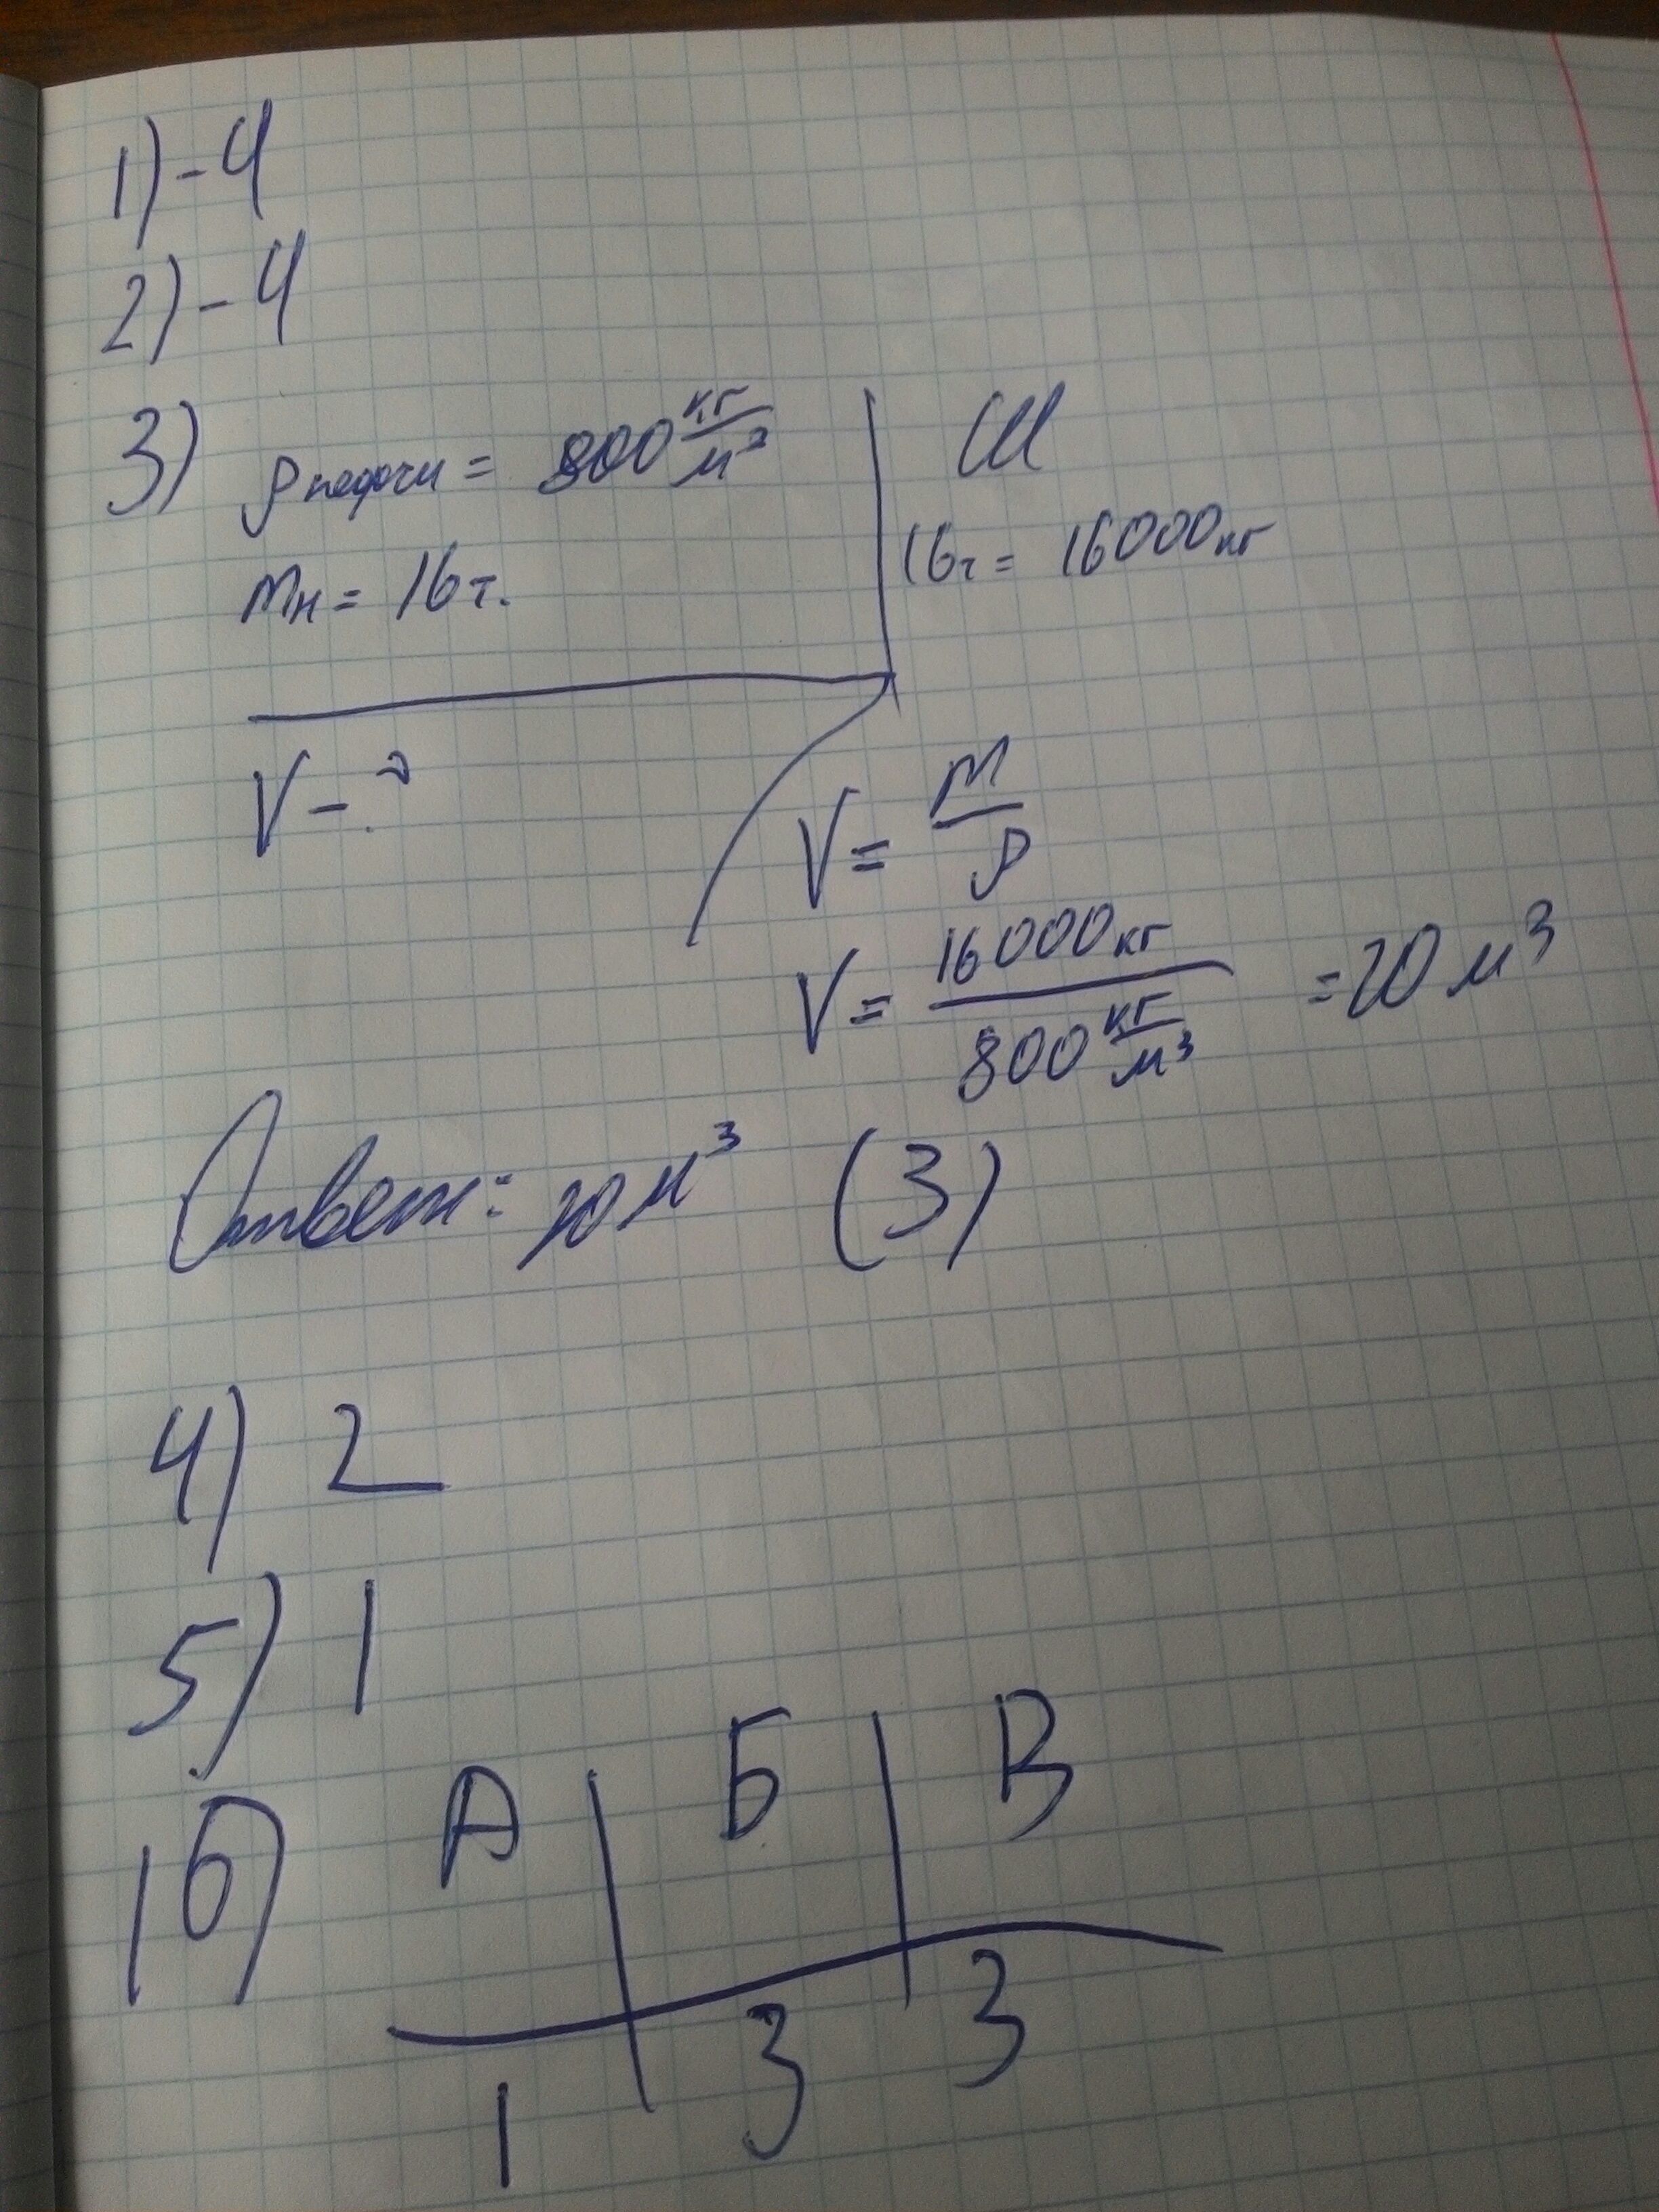 1) - 4
2) - 4
3) ρ нефти = 800 кг/м³
mн = 16 т.
V - ?
СИ
16т = 16000кг
V = m/ρ
V = 16000кг / 800 кг/м³ = 20 м³
Ответ: 20 м³ (3)
4) 2
5) 1
16) А | Б | В
1 | 3 | 3